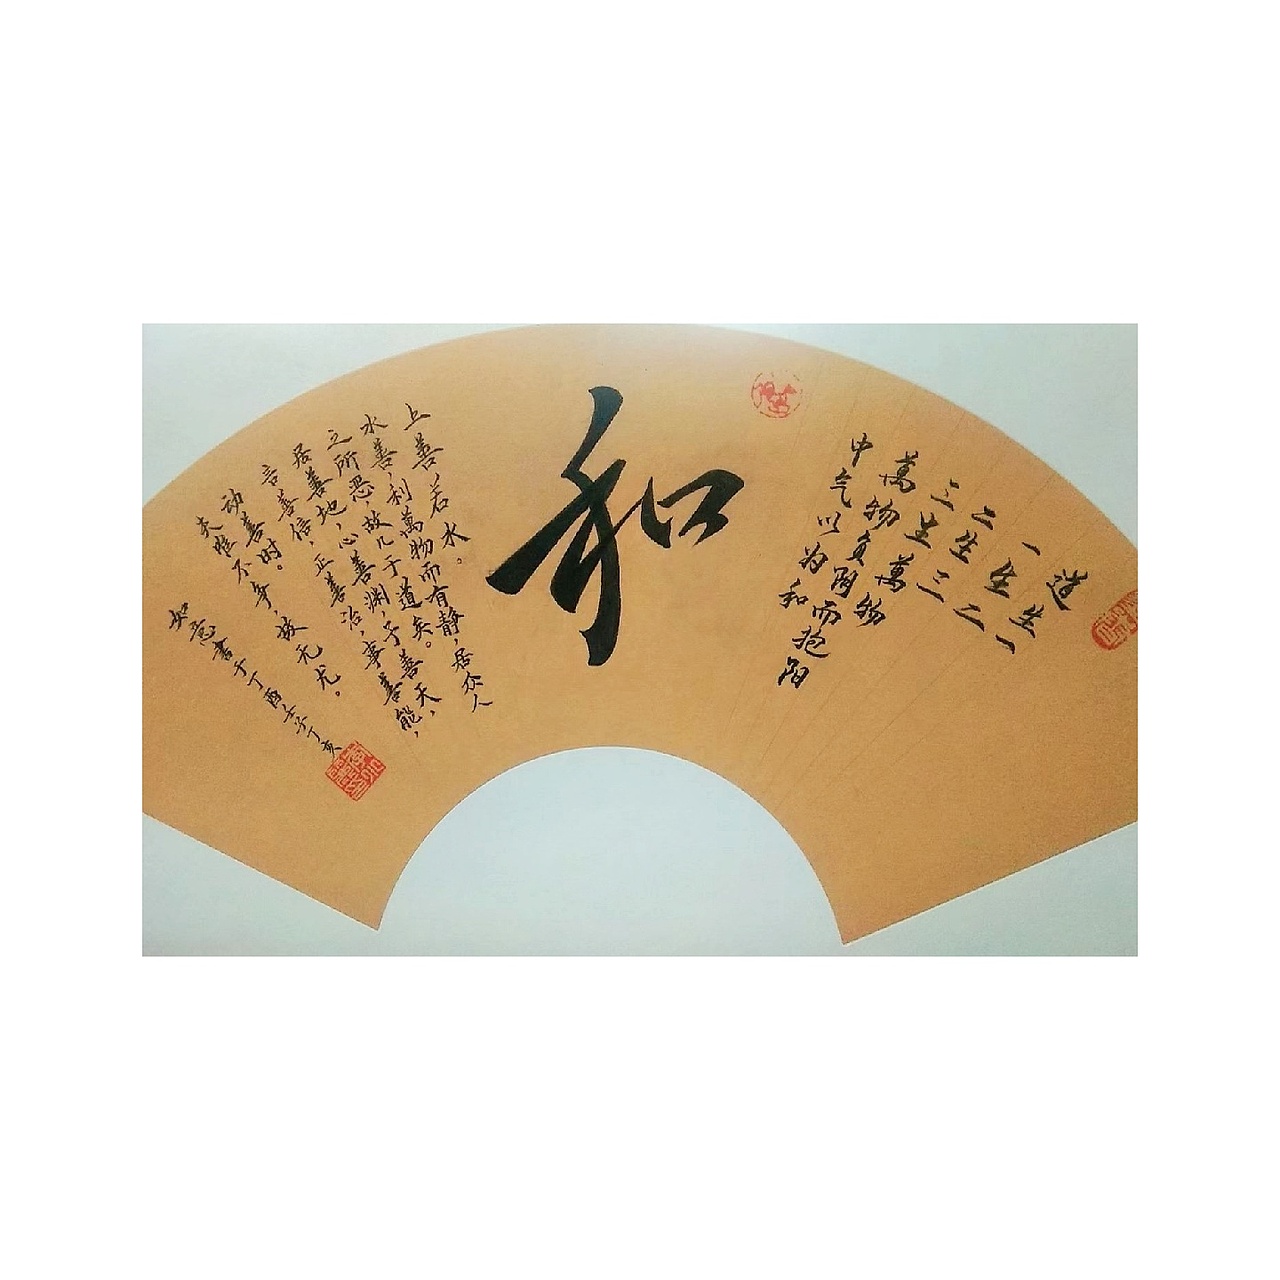 道生一
一生二
二生三
三生萬物
萬物负阴而抱阳
中气以为和
和
上善若水。
水善，利萬物而有静，居众人
之所恶，故几于道矣。
居善地，心善渊，予善天，
言善信，正善治，事善能，
动善时。
夫唯不争，故无尤。
如意書于丁酉壬子丁亥